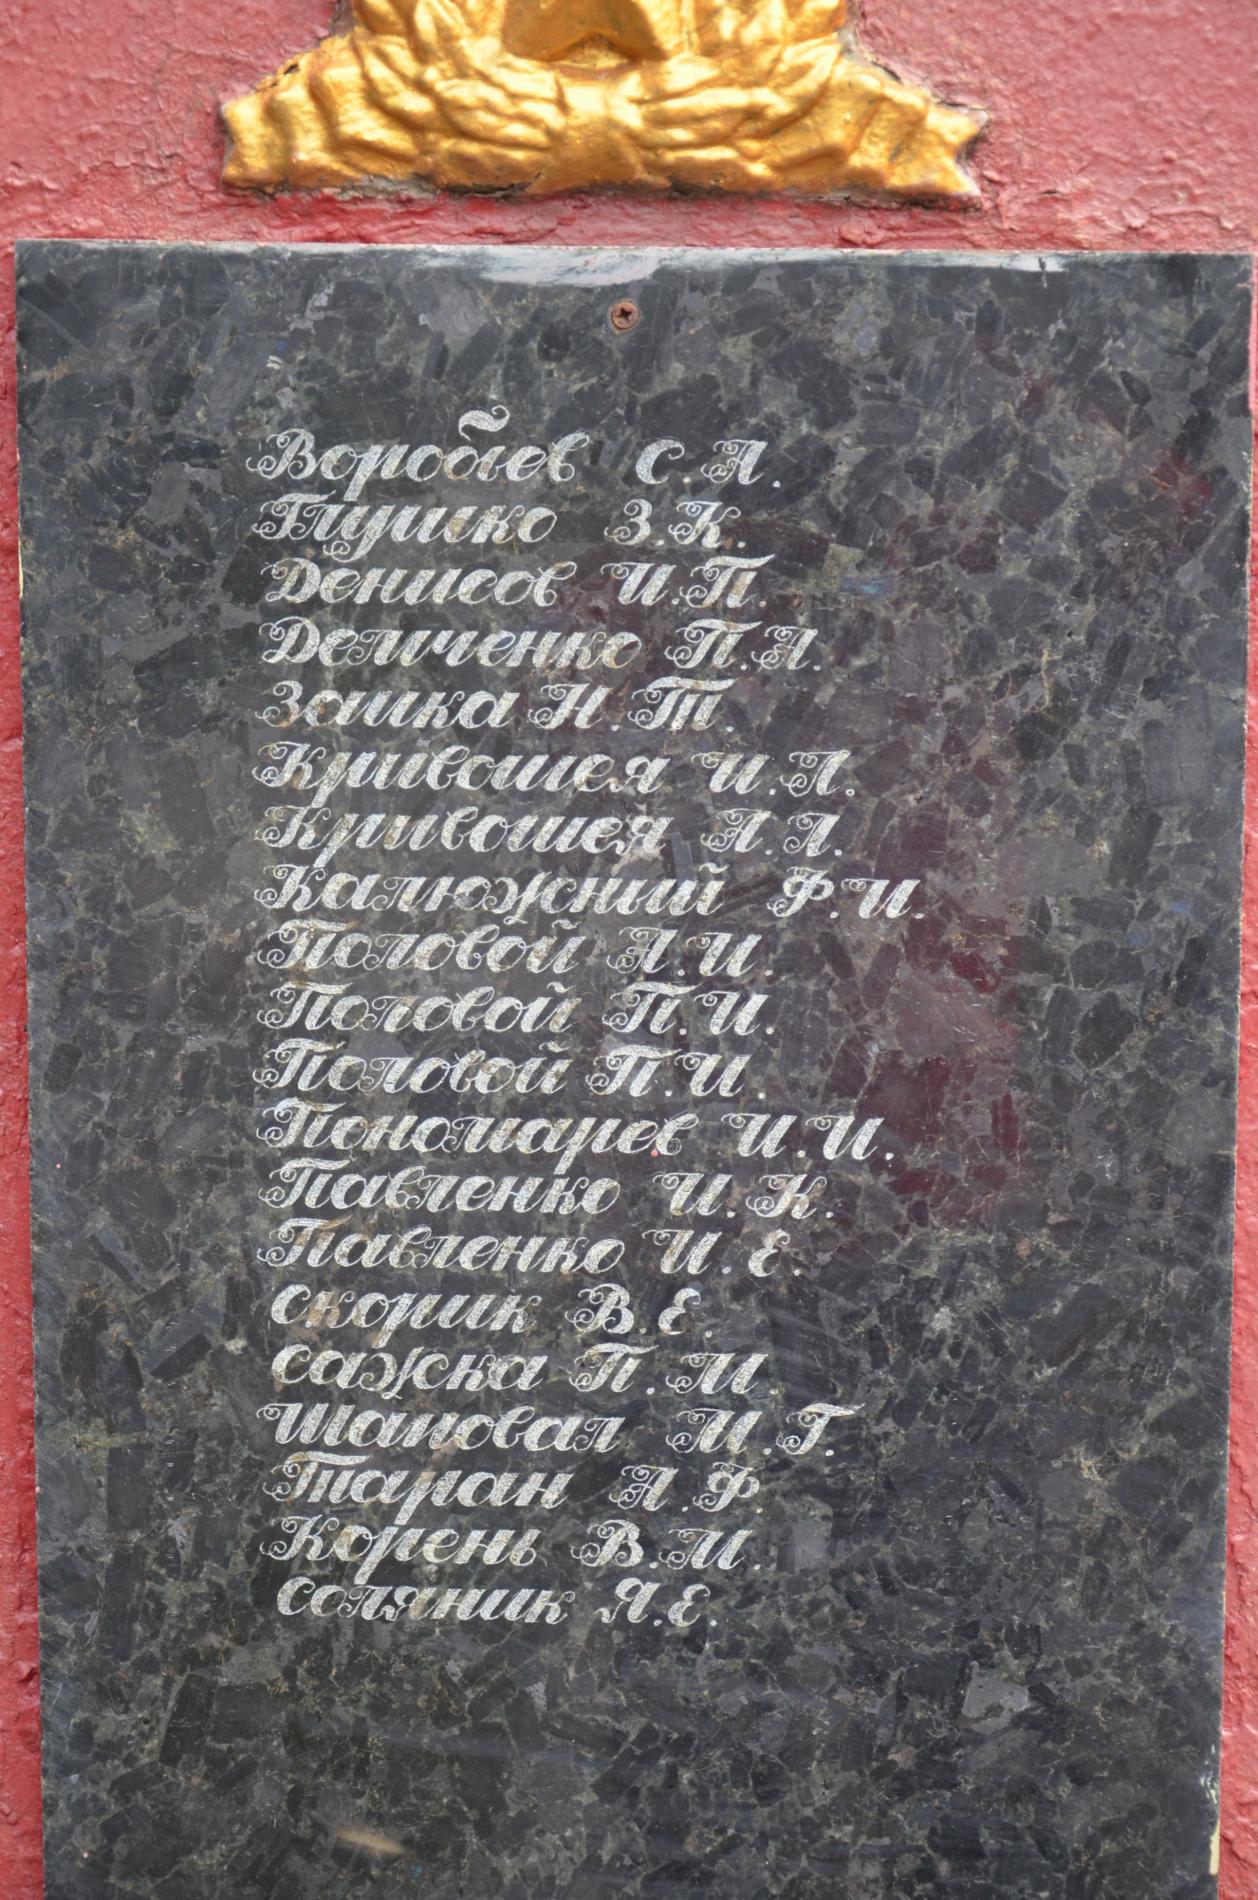 Воробьев С.А.
Глушко З.К.
Денисов И.П.
Демченко П.А.
Зашка Н.Т.
Кривошея И.Л.
Кривошея А.Л.
Калюжный Ф.И.
Половой А.И.
Половой П.И.
Половой П.И.
Пономарев И.И.
Павленко И.К.
Павленко И.Е.
Скорик В.Е.
Сажка П.М.
Шаповал М.Г.
Таран А.Ф.
Корень В.М.
Соляник Я.Е.